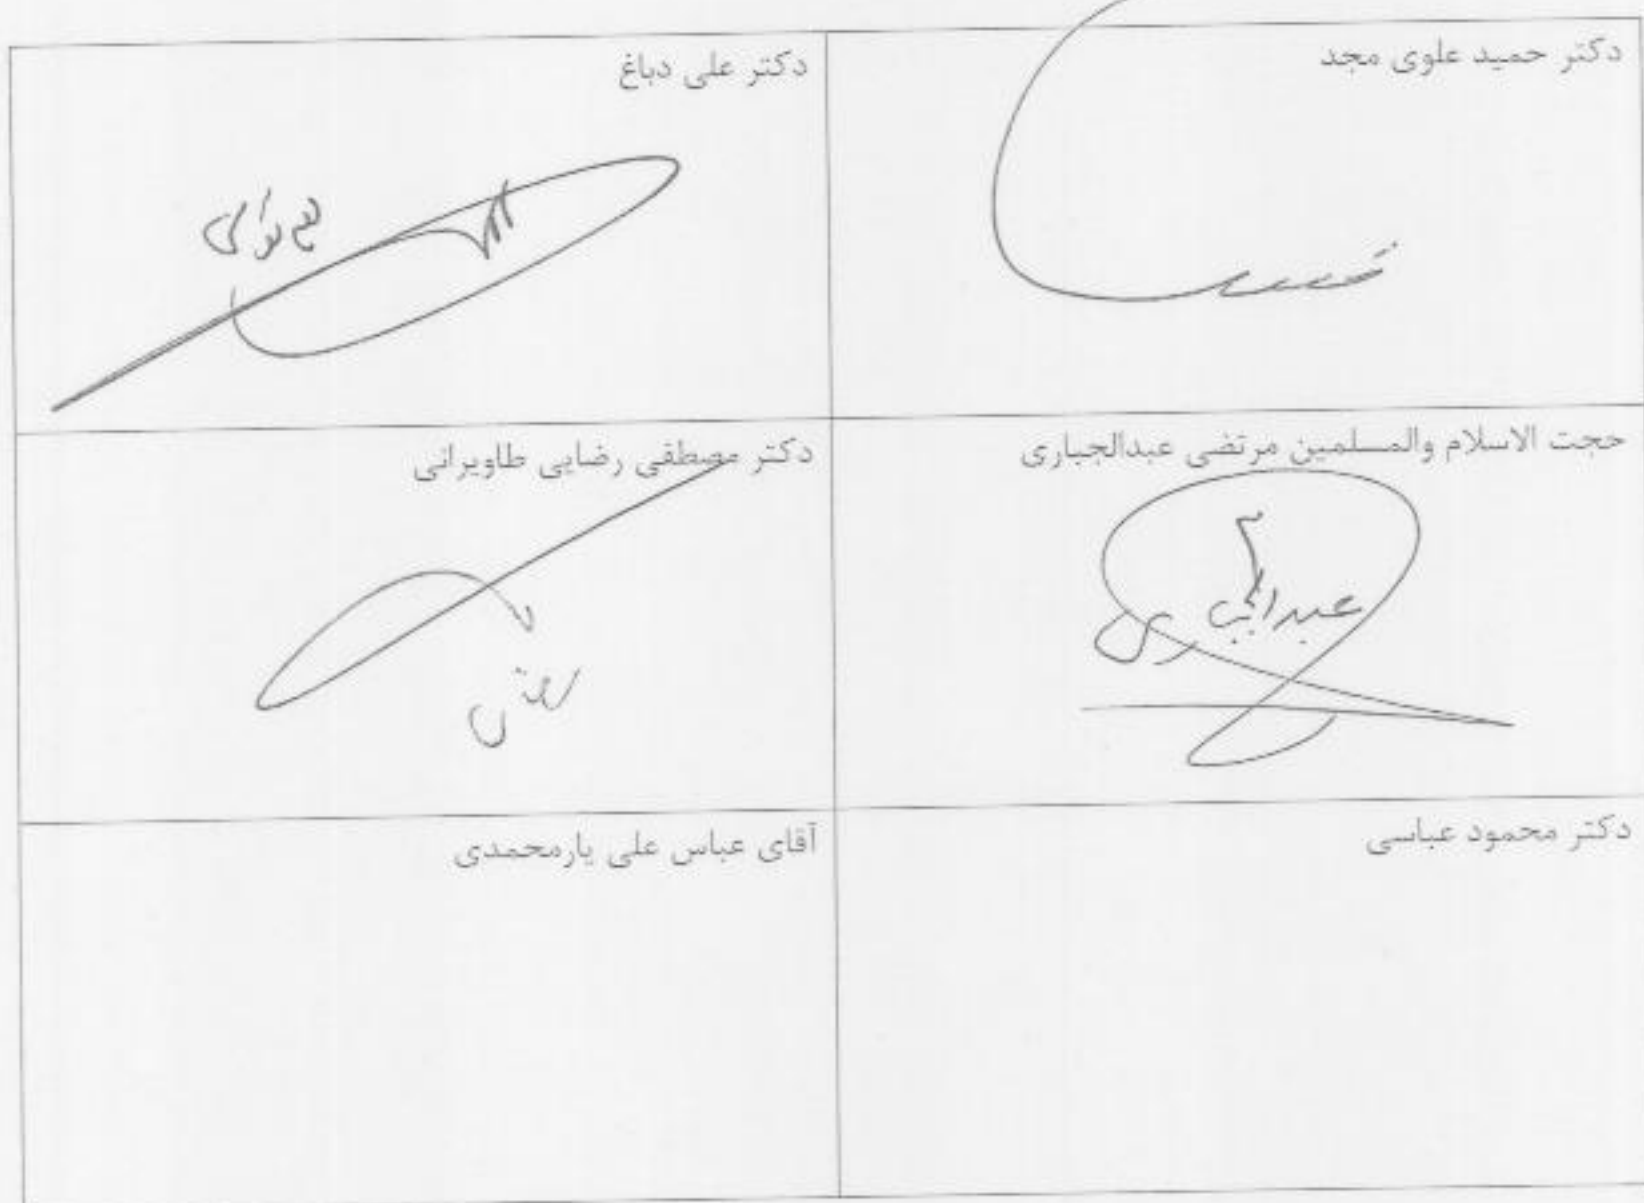 دکتر حمید علوی مجد
دکتر علی دباغ
حجت الاسلام والمسلمین مرتضی عبدالجباری
عبدالجباری
دکتر مصطفی رضایی طاویرانی
دکتر محمود عباسی
آقای عباس علی یارمحمدی